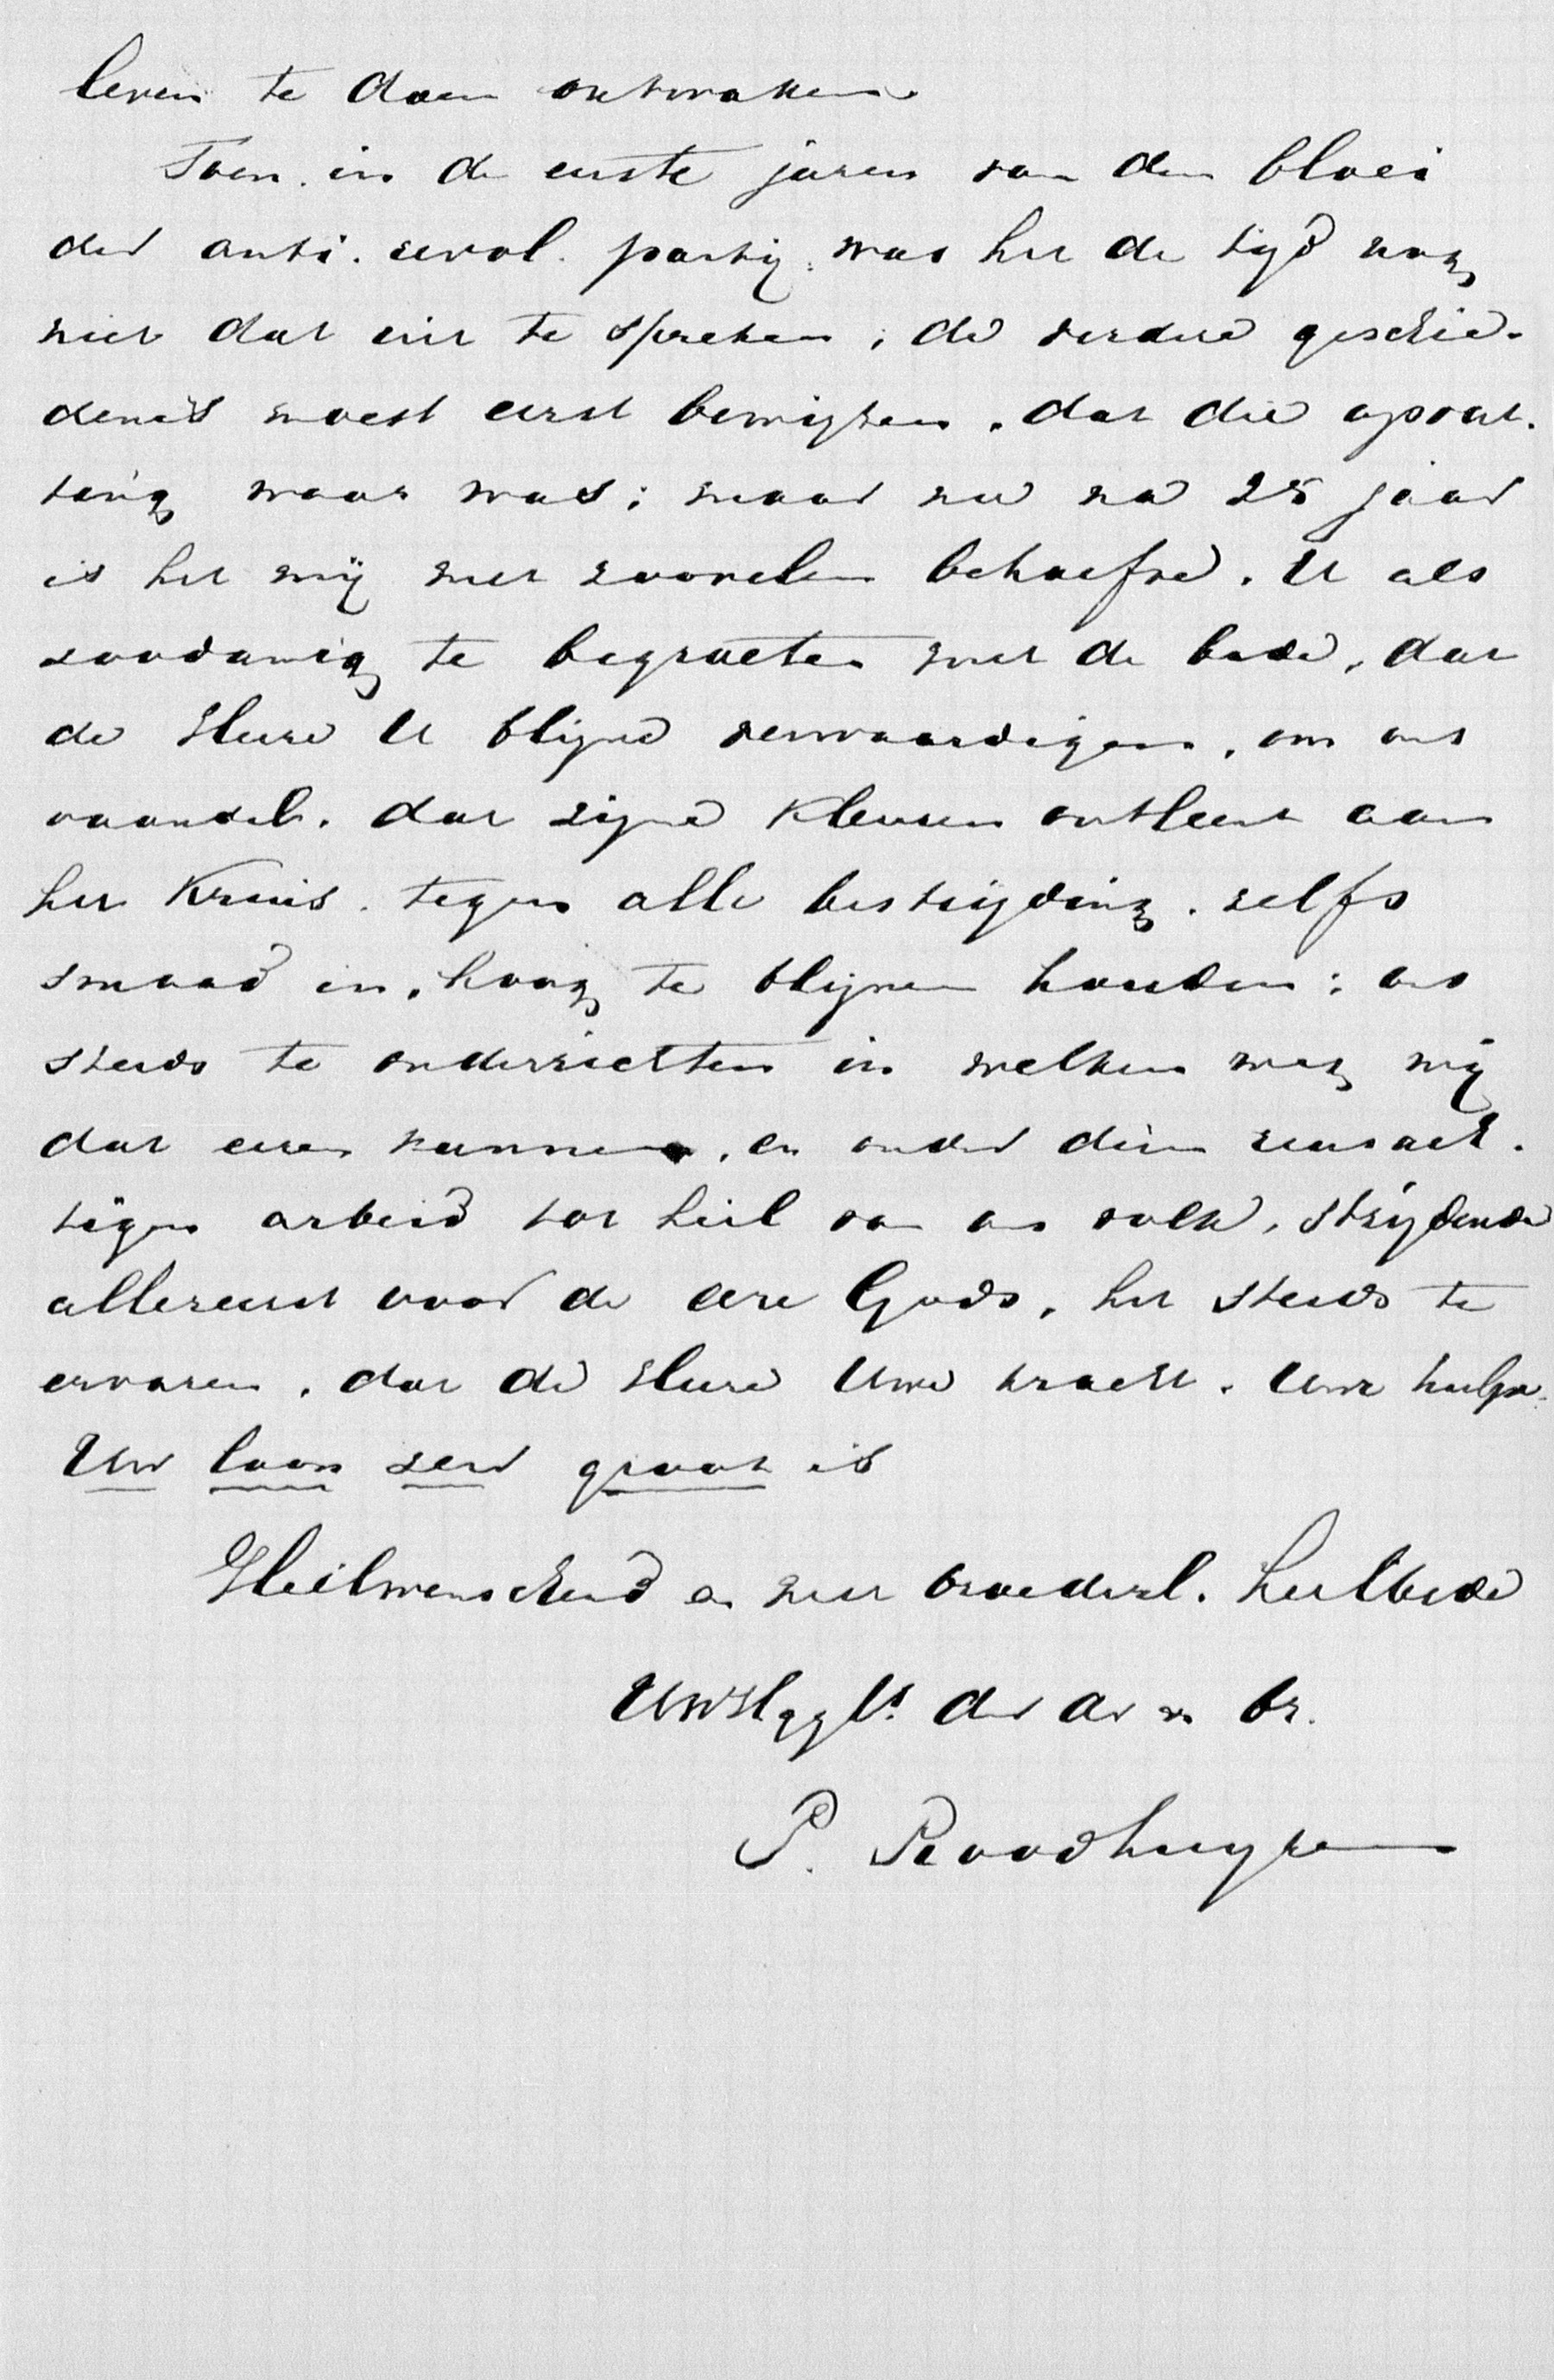 leven te doen ontwaken.
Toen in de eerste jaren van den bloei
der anti. revol. partij was het de tijd nog
niet dat uit te spreken; de verdere geschie-
denis moest eerst bewijzen, dat die opvat-
ting waar was; maar nu na 25 jaar
is het mij niet zoovelen behoefte, U als
zoodanig te begroeten met de bede, dat
de Heere U blijve verwaardigen, om ons
vaandel, dat zijne kleuren ontleent aan
het Kruis, tegen alle bestrijding, zelfs
smaad in, hoog te blijven houden; ons
steeds te onderrichten in welken weg wij
dat eeren kunnen, en onder dien reusach-
tigen arbeid tot heil van ons volk, strijdende
allereerst voor de eere Gods, het steeds te
ervaren, dat de Heere Uwe kracht, Uwe hulpe,
Uw loon zeer groot is
Heilwenschend en met broederl. heilbede
UwHggl. dw dr en br.
P. Roodhuyzen